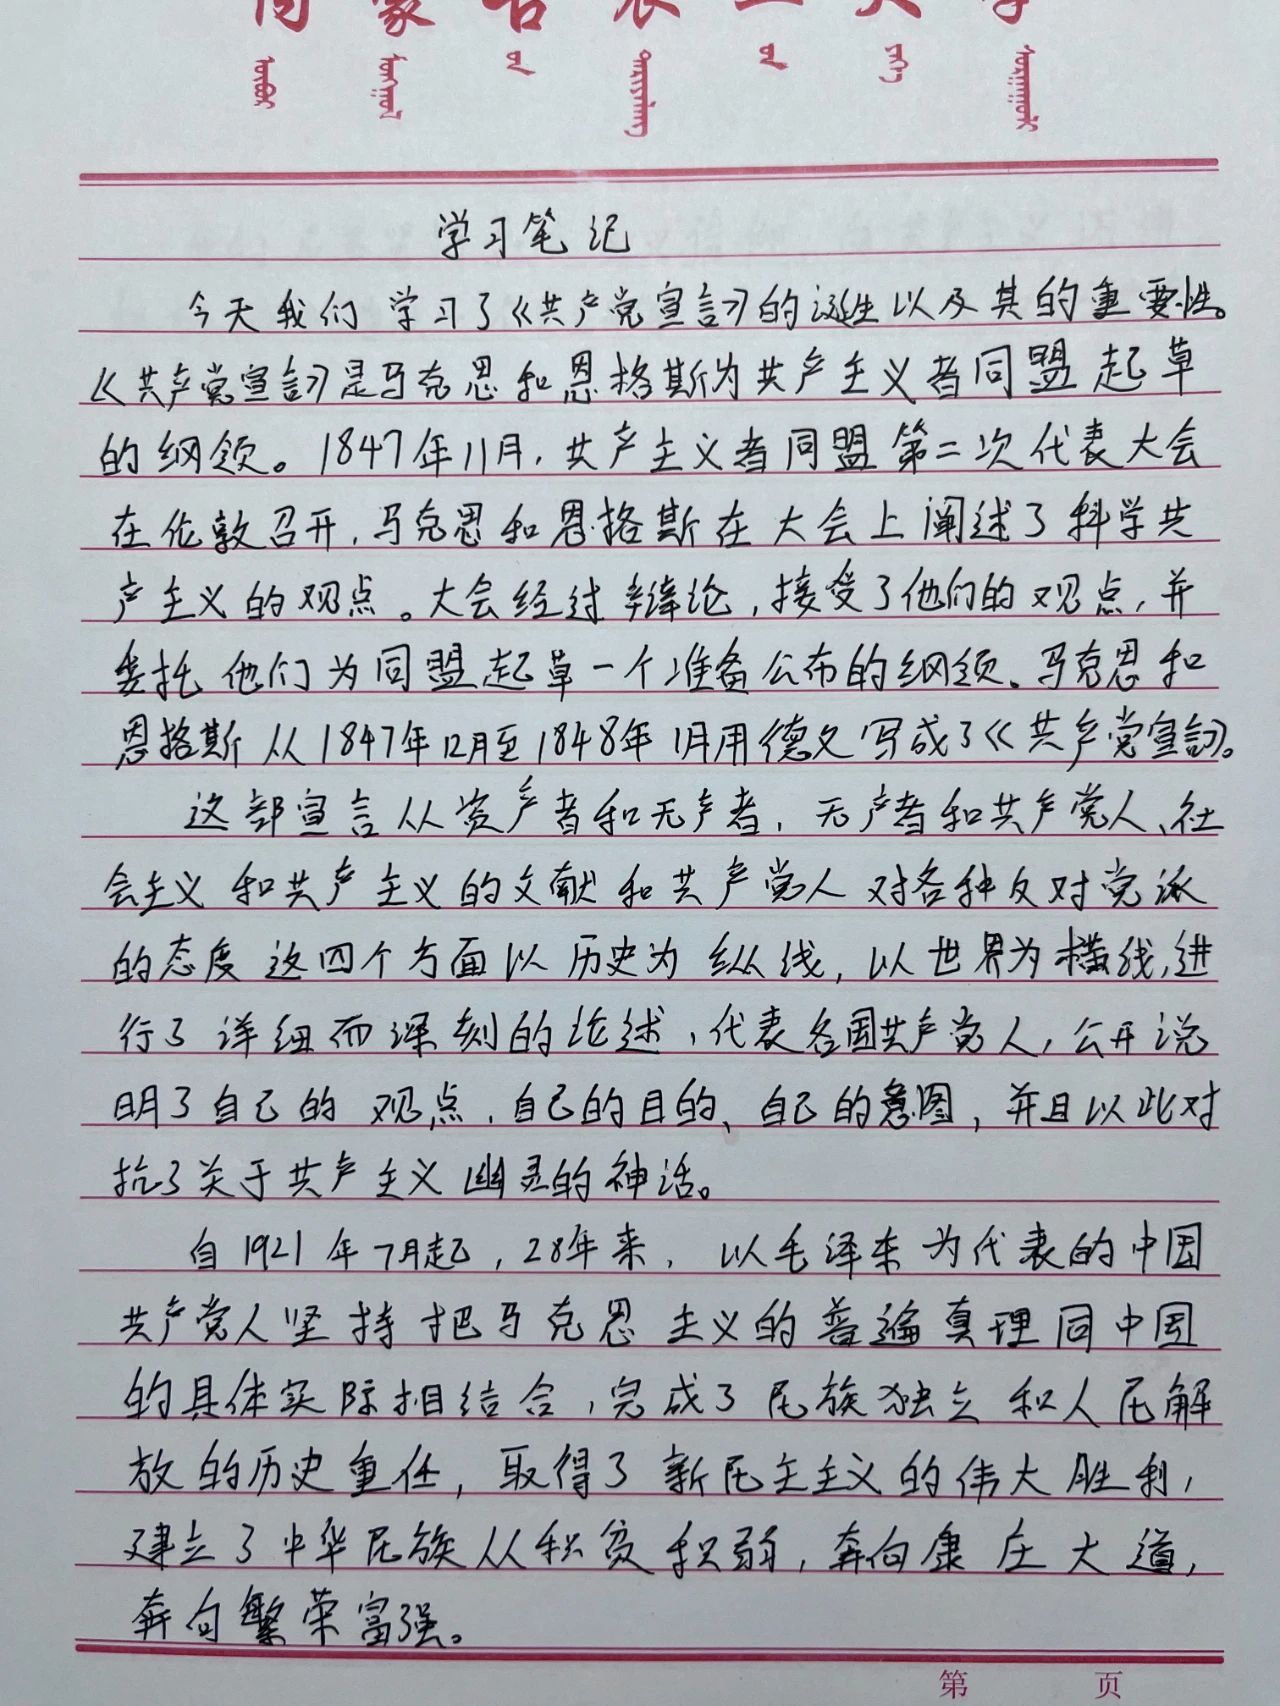 学习笔记
今天我们学习了《共产党宣言》的诞生以及其的重要性。
《共产党宣言》是马克思和恩格斯为共产主义者同盟起草
的纲领。1847年11月，共产主义者同盟第二次代表大会
在伦敦召开，马克思和恩格斯在大会上阐述了科学共
产主义的观点。大会经过辩论，接受了他们的观点，并
委托他们为同盟起草一个准备公布的纲领。马克思和
恩格斯从1847年12月至1848年1月用德文写成了《共产党宣言》。
这部宣言从资产者和无产者，无产者和共产党人、社
会主义和共产主义的文献和共产党人对各种反对党派
的态度这四个方面以历史为纵线，以世界为横线，进
行了详细而深刻的论述，代表各国共产党人，公开说
明了自己的观点，自己的目的、自己的意图，并且以此对
抗了关于共产主义幽灵的神话。
自1921年7月起，28年来，以毛泽东为代表的中国
共产党人坚持把马克思主义的普遍真理同中国
的具体实际相结合，完成了民族独立和人民解
放的历史重任，取得了新民主主义的伟大胜利，
建立了中华民族从积贫积弱，奔向康庄大道，
奔向繁荣富强。
第 页